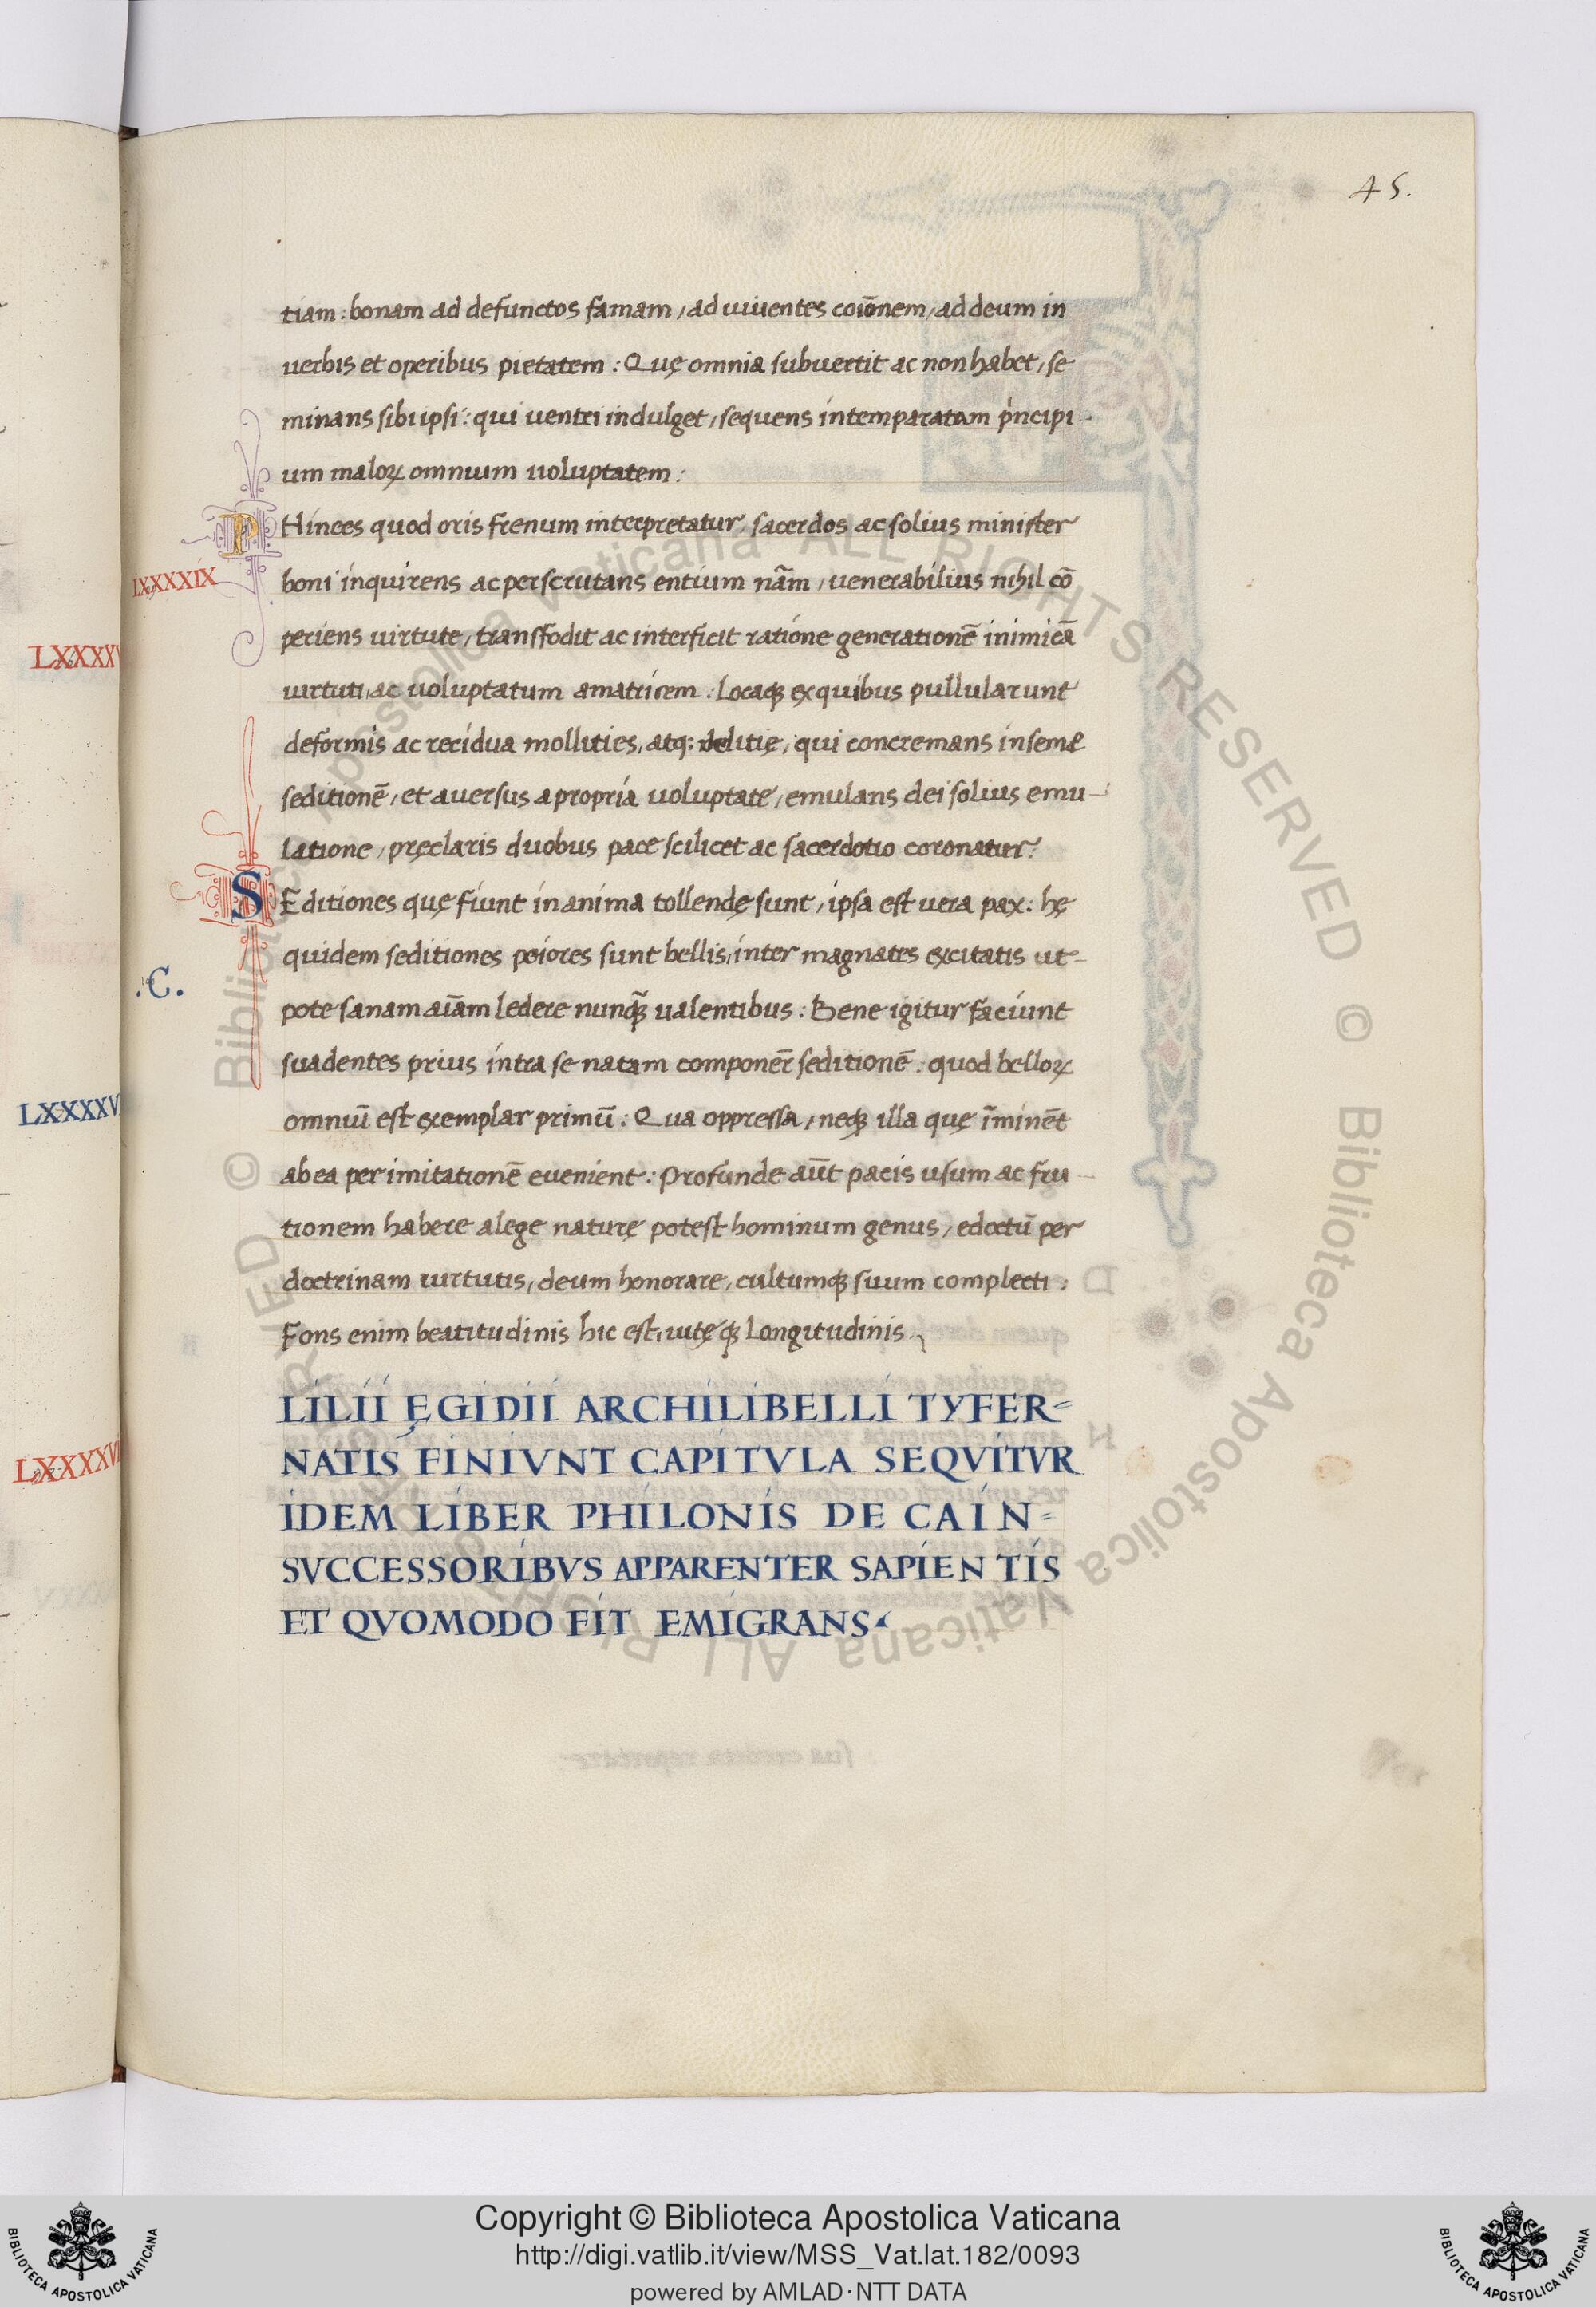 45.
tiam: bonam ad defunctos famam, ad uiuentes coīonem, ad deum in
uerbis et operibus pietatem: Quę omnia subuertit ac non habet, se
minans sibi ipsi: qui uentri indulget, sequens intemparatam pncipi-
um maloꝝ omnium uoluptatem:
PHinees quod oris frenum interpretatur, sacerdos ac solius minister
LXXXXIX
boni inquirens ac perscrutans entium nām, uenerabilius nihil cō
periens uirtute, transfodit ac interficit ratione generationē inimicā
LXXXXV
uirtuti, ac uoluptatum amatricem. Locaqꝫ ex quibus pullularunt
deformis ac recidua mollities, atq: delitię, qui concremans in seme
seditionē, et auersus a propria uoluptate, emulans dei solius emu-
latione, pręclaris duobus pace scilicet ac sacerdotio coronatur:
SEditiones quę fiunt in anima tollendę sunt, ipsa est uera pax: hę
quidem seditiones peiores sunt bellis, inter magnates excitatis ut-
.C.
pote sanam aīam ledere nunqꝫ ualentibus: Bene igitur faciunt
suadentes prius intra se natam componēr seditionē: quod belloꝝ
omniū est exemplar primū: Qua oppressa, neqꝫ illa quę īminēt
LXXXXV
ab ea per imitationē euenient: Profunde aūt pacis usum ac fru-
tionem habere a lege naturę potest hominum genus, edoctū per
doctrinam uirtutis, deum honorare, cultumqꝫ suum complecti:
Fons enim beatitudinis hic est, uitęqꝫ longitudinis.
LILII ĘGIDII ARCHILIBELLI TYFER-
NATIS FINIVNT CAPITVLA SEQVITVR
LXXXXVI
IDEM LIBER PHILONIS DE CAIN-
SVCCESSORIBVS APPARENTER SAPIENTIS
ET QVOMODO FIT EMIGRANS
© Biblioteca Apostolica Vaticana ALL RIGHTS RESERVED © Biblioteca Apostolica Vaticana ALL RIGHTS RESERVED
Copyright © Biblioteca Apostolica Vaticana
http://digi.vatlib.it/view/MSS_Vat.lat.182/0093
powered by AMLAD·NTT DATA
BIBLIOTECA APOSTOLICA VATICANA
BIBLIOTECA APOSTOLICA VATICANA